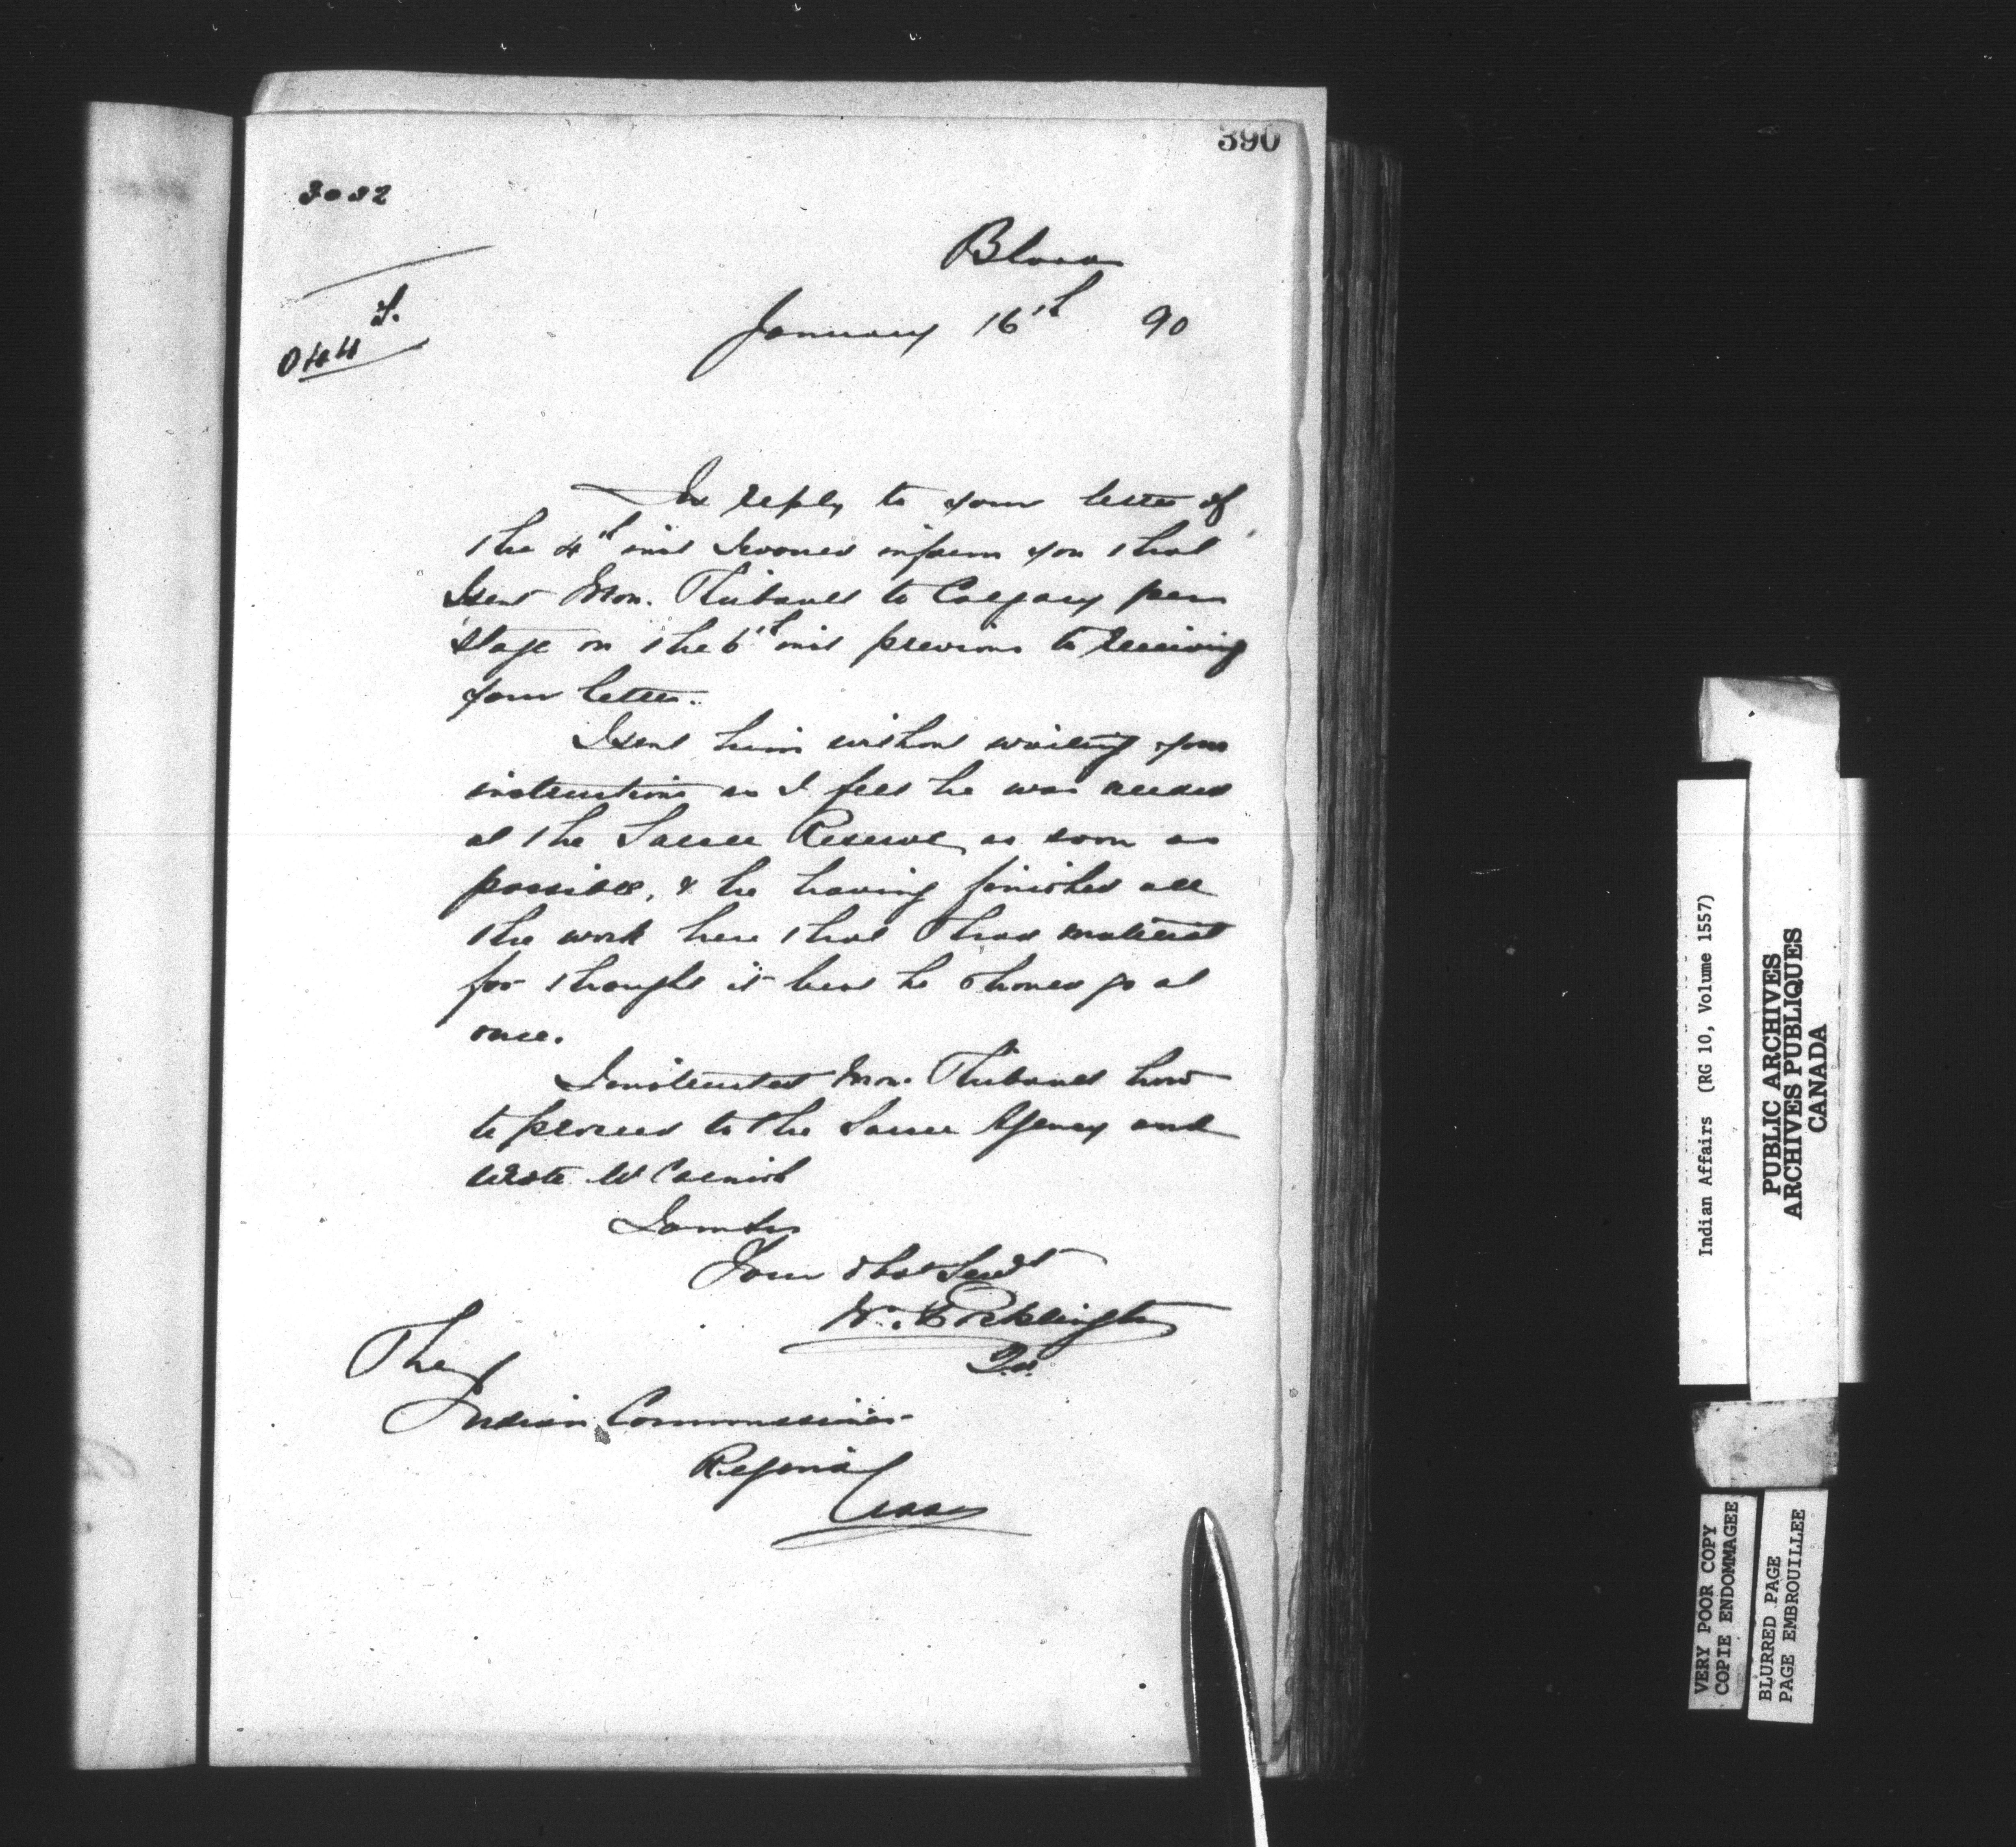 390
3032
Blood
January 16th 90
In reply to your letter of
the 4th inst I would inform you that
I sent Mon. Thibault to Calgary per
stage on the 6th inst previous to receiving
your letter.
I sent him without waiting your
instructions as I felt he was needed
at the Sarcee Reserve as soon as
possible, & he having finished all
the work here that I had material
for thought it best he should go at
once.
I instructed Mon. Thibault how
to proceed to the Sarcee Agency and
wrote Mr Cornish
I am Sir
Your Obdt Servt
W. Pocklington
The
Indian Commissioner
Regina
Assa
Indian Affairs (RG 10, Volume 1557)
PUBLIC ARCHIVES
ARCHIVES PUBLIQUES
CANADA
VERY POOR COPY
COPIE ENDOMMAGEE
BLURRED PAGE
PAGE EMBROUILLEE